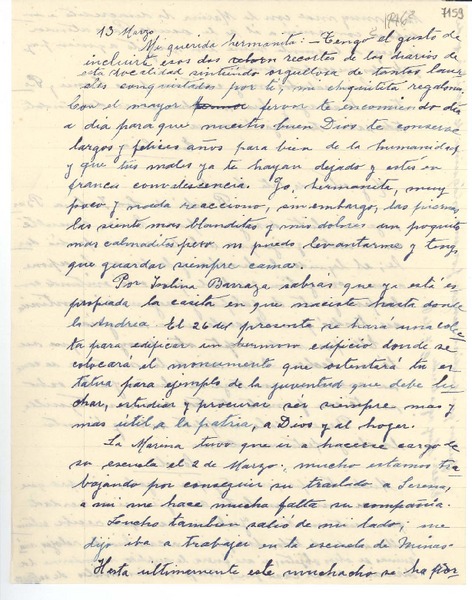 1946? 7159
13 Marzo
Mi querida hermanita: - Tengo el gusto de
incluirte esos dos recortes de los diarios de
esta localidad sintiendo orgullosa de tantos laure
les conquistados por ti, mi chiquitita regalona.
Con el mayor fervor te encomiendo día
a día para que nuestro buen Dios te conserve
largos y felices años para bien de la humanidad
y que tus males ya te hayan dejado y estés en
franca convalescencia. Yo, hermanita, muy
poco y nada reacciono, sin embargo, las piernas
las siento mas blanditas y mis dolores un poquito
mas calmaditos pero no puedo levantarme y tengo
que guardar siempre cama.
Por Isolina Barraza sabrás que ya está ex
propiada la casita en que naciste hasta donde
la Andrea. El 26 del presente se hará una colec
ta para edificar un hermoso edificio donde se
colocará el monumento que ostentará tu es
tatua para ejemplo de la juventud que debe lu
char, estudiar y procurar ser siempre mas y
mas útil a la patria, a Dios y al hogar.
La Marina tuvo que ir a hacerse cargo de
su escuela el 2 de Marzo; mucho estamos tra
bajando por conseguir su traslado a Serena,
a mi me hace mucha falta su compañía.
Loucho tambien salió de mi lado; me
dijo iba a trabajar en la escuela de Minas.
Hasta ultimamente este muchacho se ha por